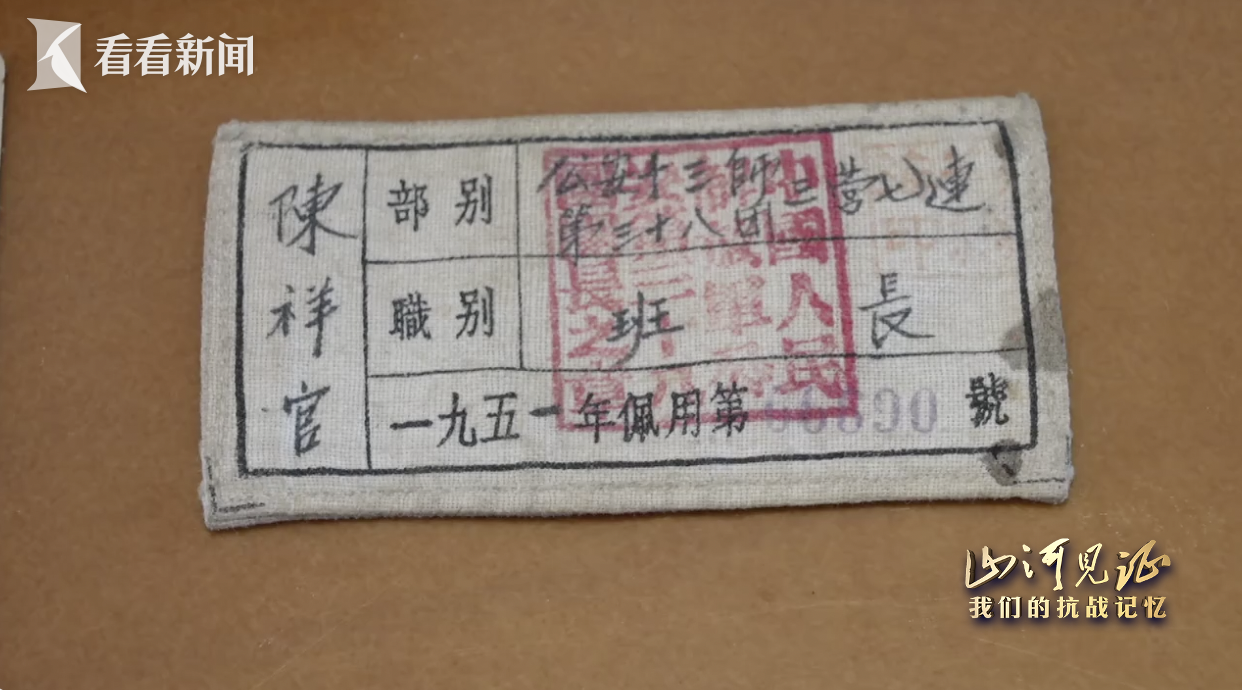 看看新闻
陳祥官
部别
公安十三師三营七連
第三十八团
職别
班長
一九五一年佩用第 00890 號
中國人民
山河见证
我们的抗战记忆